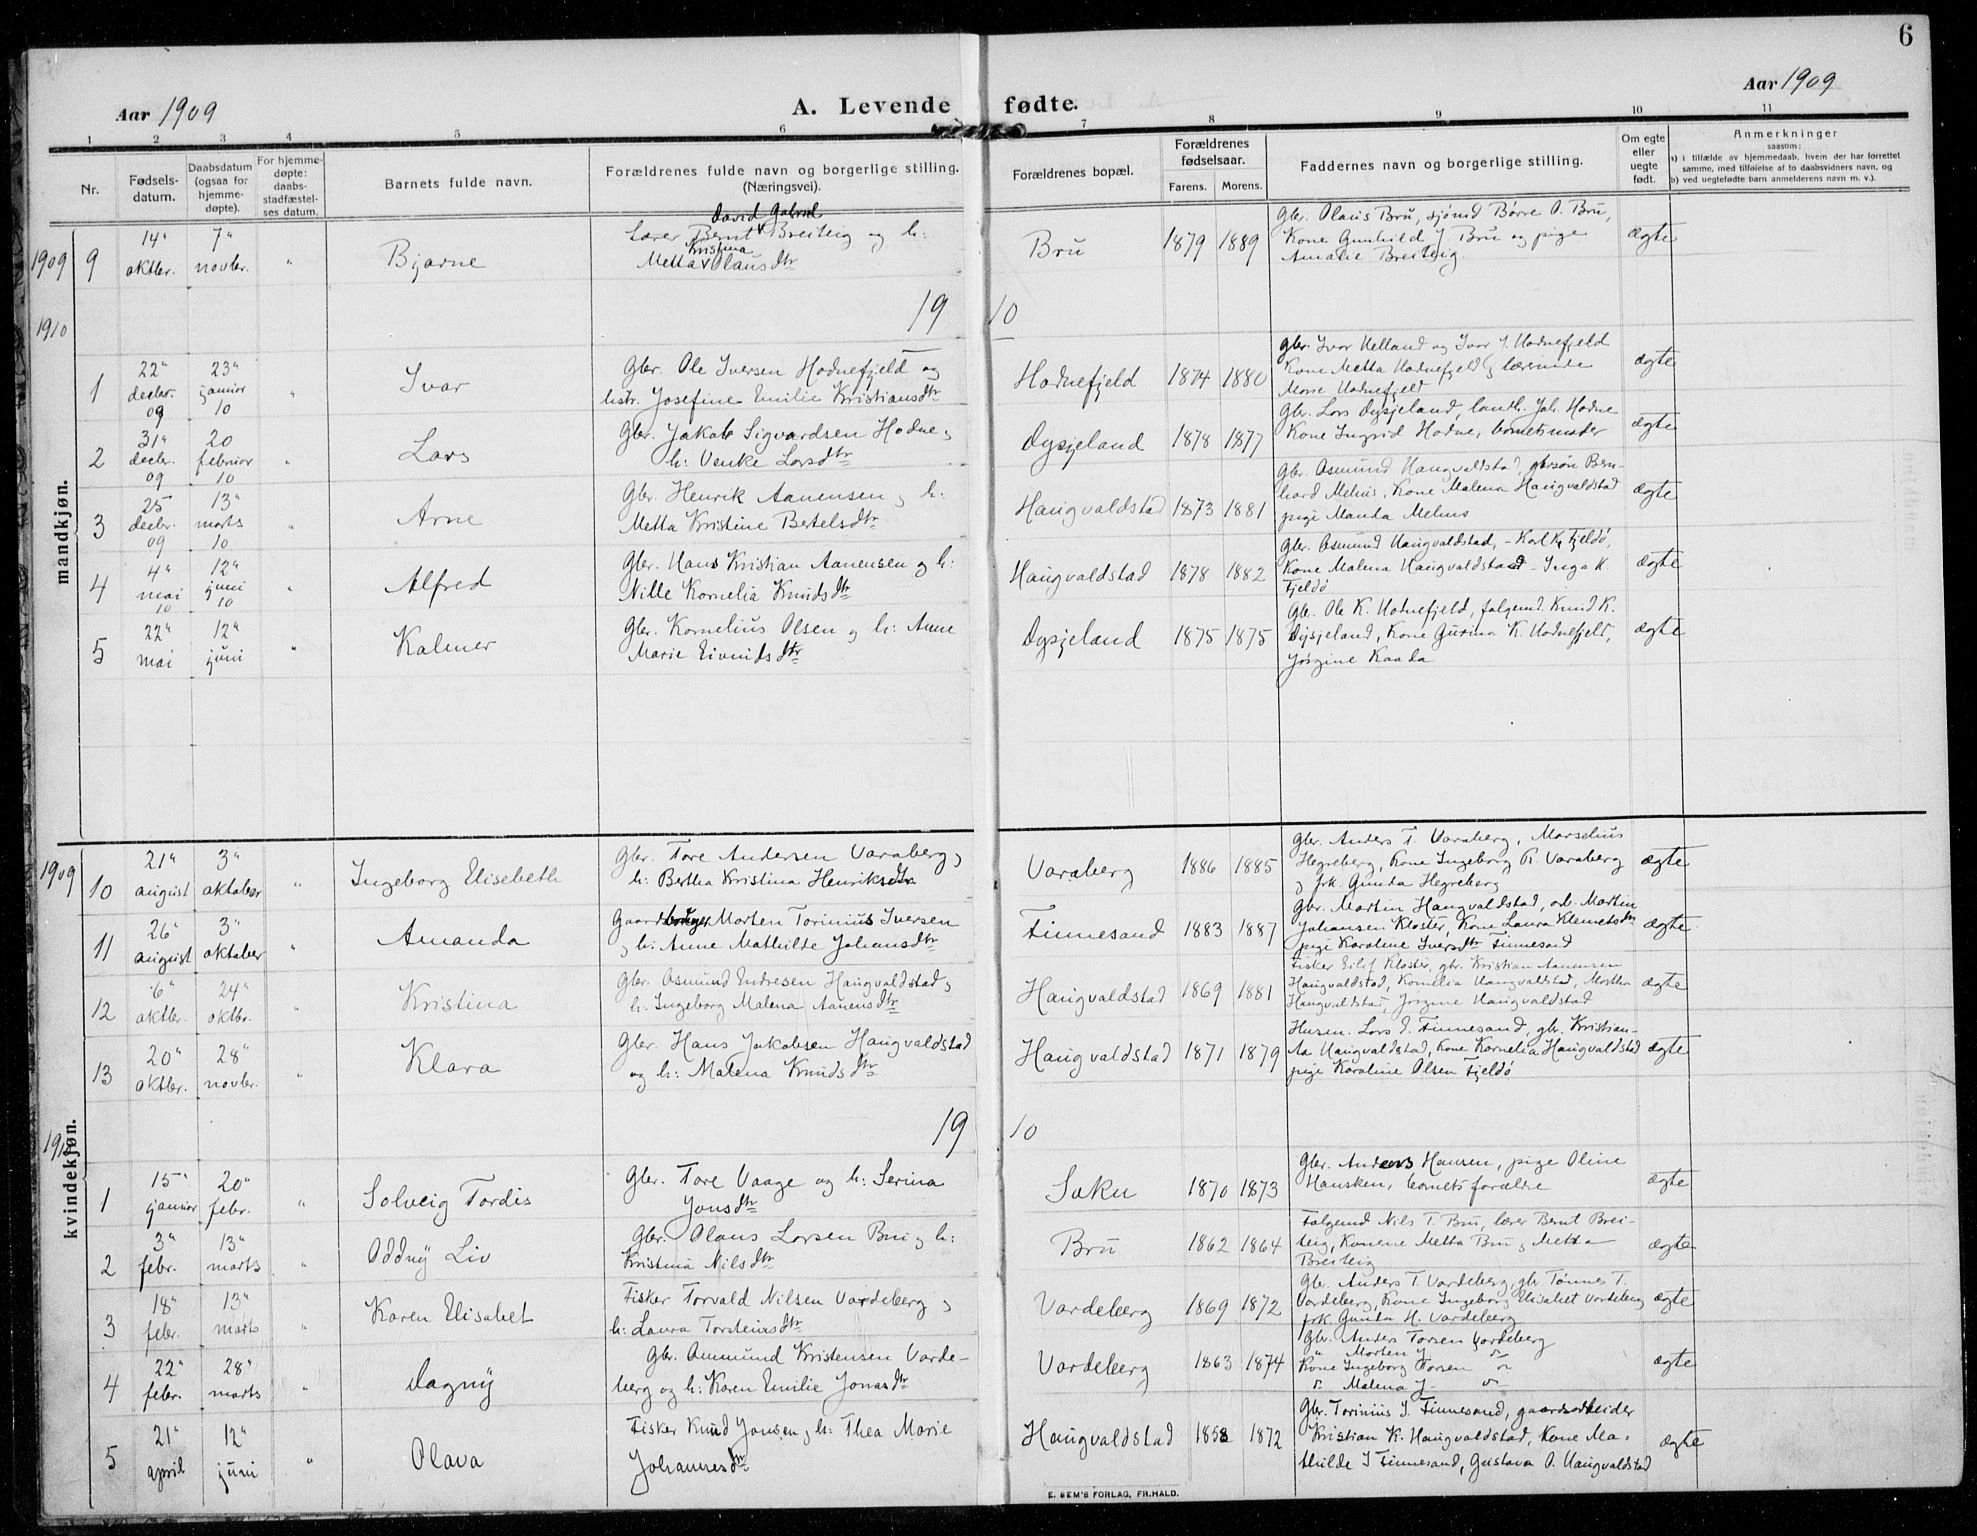 6
Aar 1909
A. Levende fødte.
Aar 1909
1 2 3 4 5 6 7 8 9 10 11
Nr.
Fødsels-
datum.
Daabsdatum
(ogsaa for
hjemme-
døpte).
For hjemme-
døpte:
daabs-
stadfæstel-
ses datum.
Barnets fulde navn.
Forældrenes fulde navn og borgerlige stilling.
(Næringsvei).
Forældrenes bopæl.
Forældrenes
fødselsaar.
Farens. Morens.
Faddernes navn og borgerlige stilling.
Om egte
eller
uegte
født.
Anmerkninger
saasom:
a) i tilfælde av hjemmedaab, hvem der har forrettet
samme, med tilføielse af to daabsvidners navn, og
b) ved uegtefødte barn anmelderens navn m. v.).
mandkjøn.
1909 9
14" oktbr.
7" novbr.
"
Bjarne
David Gabriel
Lærer Bernt Breiteig og h:
Kristina
Metta Olausdtr
Bru
1879 1889
Gbr. Olaus Bru, sjømd Børre O. Bru,
Kone Gunhild J. Bru og pige
Amalie Breiteig
Ægte
1910
19 10
1
22" decbr. 09
23" januar 10
"
Ivar
Gbr. Ole Iversen Hodnefjeld og
hstr. Josefine Emilie Kristiansdtr
Hodnefjeld
1874 1880
Gbr. Ivar Helland og Ivar I. Hodnefjeld
Kone Metta Hodnefjeld, lærerinde
Hodnefjeld
Ægte
2
31" decbr. 09
20 februar 10
"
Lars
Gbr. Jakob Sigvardsen Hodne,
h: Venke Larsdtr
Dysjeland
1878 1877
Gbr. Lars Dysjeland, Joh. Hodne
Kone Ingrid Hodne, barnets moder
Ægte
3
25 decbr. 09
13" marts 10
"
Arne
Gbr. Henrik Aanensen, h:
Metta Kristine Bertelsdtr
Haugvaldstad
1873 1881
Gbr. Asmund Haugvaldstad, gbrsøn Bern-
hard Melhus, Kone Malena Haugvaldstad
pige Manda Melhus
Ægte
4
4" mai 10
12" juni 10
"
Alfred
Gbr. Hans Kristian Aanensen og h:
Nille Kornelia Knudsdtr
Haugvaldstad
1878 1882
Gbr. Asmund Haugvaldstad, - Karl K. Fjeldø,
Kone Malena Haugvaldstad - Inga K.
Fjeldø
Ægte
5
22" mai
12" juni
"
Kalmer
Gbr. Kornelius Olsen og h: Anne
Marie Eivindsdtr
Dysjeland
1875 1875
Gb. Ole K. Hodnefjeld, følgemd. Knud K.
Dysjeland, Kone Gurina K. Hodnefjeld,
Jørgine Kaada
Ægte
kvindekjøn.
1909 10
21" august
3" oktober
"
Ingeborg Elisebeth
Gbr. Tore Andersen Varaberg,
h: Bertha Kristina Henriksdtr
Varaberg
1886 1885
Gbr. Anders T. Varaberg, Marselius
Hegreberg, Kone Ingeborg A. Varaberg
, frk. Gunda Hegreberg
Ægte
11
26" august
3" oktober
"
Amanda
Gaardbruger Morten Torinius Iversen
, h: Anne Mathilde Johansdtr
Finnesand
1883 1887
Gbr. Martin Haugvaldstad, arb. Martin
Johansen Kloster, Kone Laura Klemetsdtr
pige Karoline Iversdtr Finnesand
Ægte
12
6" oktbr.
24" oktbr.
"
Kristina
Gbr. Asmund Endresen Haugvaldstad,
h. Ingeborg Malena Aanensdtr
Haugvaldstad
1869 1881
Fisker Eilif Kloster, gbr. Kristian Aanensen
Haugvaldstad, Kornelia Haugvaldstad, Martha
Haugvaldstad, Jorgine Haugvaldstad
Ægte
13
20" oktbr.
28" novbr.
"
Klara
Gbr. Hans Jakobsen Haugvaldstad
og h: Malena Knudsdtr
Haugvaldstad
1871 1879
Husm. Lars I. Finnesand, gbr. Kristian
Aa Haugvaldstad, Kone Kornelia Haugvaldstad
pige Karoline Olsen Fjeldø
Ægte
1910
19 10
1
15" januar
20" febr.
"
Solveig Tordis
Gbr. Tore Vaage og h: Serina
Jonsdtr
Soku
1870 1873
Gbr. Anders Hansen, pige Oline
Hansken, barnets forældre
Ægte
2
3" febr.
13" marts
"
Oddny Liv
Gbr. Olaus Larsen Bru, h:
Kristina Nilsdtr
Bru
1862 1864
Følgemd Nils T. Bru, lærer Bernt Brei-
teig, Konene Metta Bru, Metta
Breiteig
Ægte
3
18" febr.
13" marts
"
Karen Elisabet
Fisker Torvald Nilsen Vardeberg,
h: Laura Torsteinsdtr
Vardeberg
1869 1872
Gbr. Anders T. Vardeberg, gbr Tønnes T.
Vardeberg, Kone Ingeborg Elisabet Vardeberg
frk Gunda H. Vardeberg
Ægte
4
22" febr.
28" marts
"
Dagny
Gbr. Ommund Kristensen Varde-
berg og h: Karen Emilie Jonasdtr
Vardeberg
1863 1874
Gbr. Anders Torsen Vardeberg
" Morten J. "
Kone Ingeborg Torsen "
" Malena J. "
Ægte
5
21" april
12" juni
"
Olava
Fisker Knud Jonsen, h: Thea Marie
Johannesdtr
Haugvaldstad
1858 1872
Gbr. Torinius I. Finnesand, gaardsarbeider
Kristian K. Haugvaldstad, Kone Ma-
thilde I Finnesand, Gustava O. Haugvaldstad
Ægte
E. SEM'S FORLAG, FR.HALD.